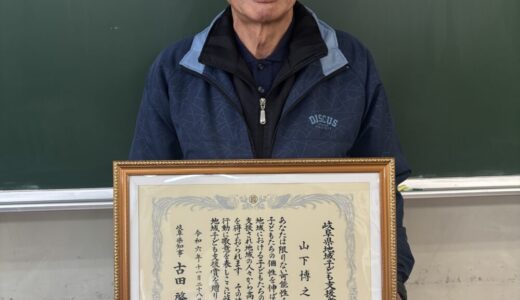 DISCUS
岐阜県地域子ども支援
山下博之
あなたは限りない可能性
子どもたちの個性を伸ば
地域における子どもたちの
支援され地域の人々から高
を得ておられます
行動に敬意を表しここに
地域子ども支援賞を贈り
令和六年十一月二十八
岐阜県知事 古田